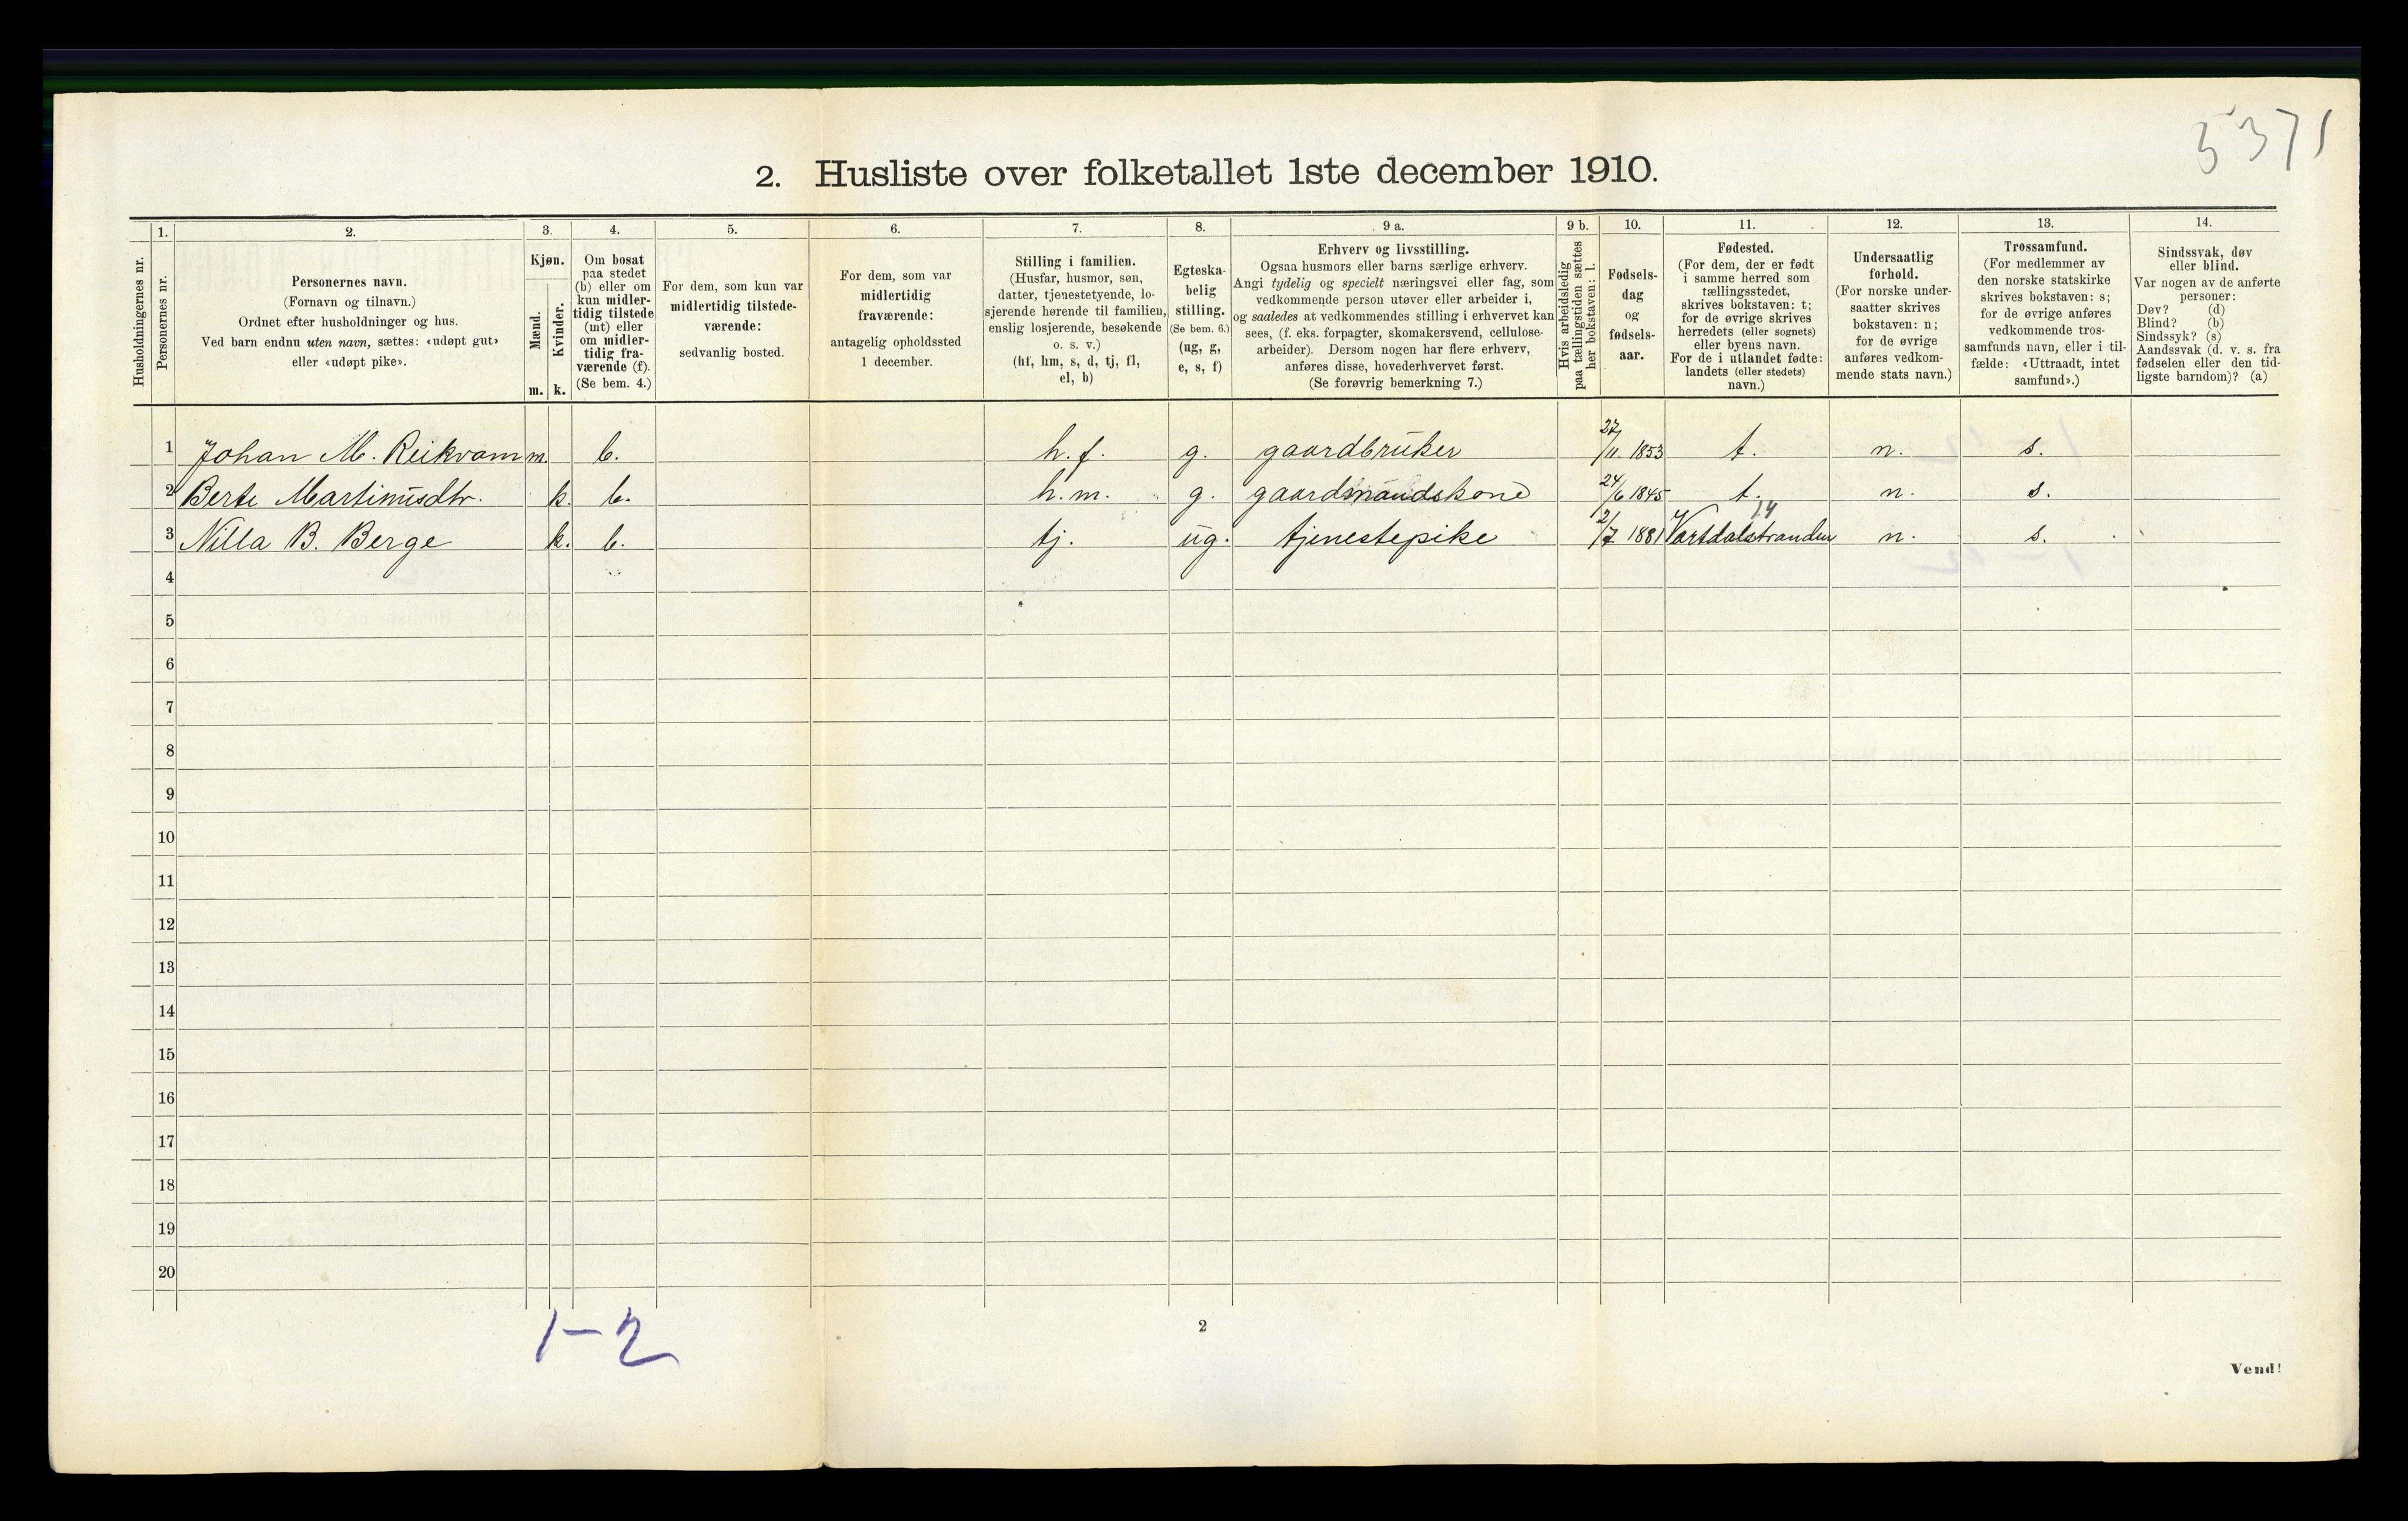 5371
2. Husliste over folketallet 1ste december 1910.
Husholdningernes nr.
1.
Personernes nr.
2.
Personernes navn.
(Fornavn og tilnavn.)
Ordnet efter husholdninger og hus.
Ved barn endnu uten navn, sættes: «udøpt gut»
eller «udøpt pike».
3.
Kjøn.
Mænd.
Kvinder.
m. k.
4.
Om bosat
paa stedet
(b) eller om
kun midler-
tidig tilstede
(mt) eller
om midler-
tidig fra-
værende (f).
(Se bem. 4.)
5.
For dem, som kun var
midlertidig tilstede-
værende:
sedvanlig bosted.
6.
For dem, som var
midlertidig
fraværende:
antagelig opholdssted
1 december.
7.
Stilling i familien.
(Husfar, husmor, søn,
datter, tjenestetyende, lo-
sjerende hørende til familien,
enslig losjerende, besøkende
o. s. v.)
(hf, hm, s, d, tj, fl,
el, b)
8.
Egteska-
belig
stilling.
(Se bem. 6.)
(ug, g,
e, s, f)
9 a.
Erhverv og livsstilling.
Ogsaa husmors eller barns særlige erhverv.
Angi tydelig og specielt næringsvei eller fag, som
vedkommende person utøver eller arbeider i,
og saaledes at vedkommendes stilling i erhvervet kan
sees, (f. eks. forpagter, skomakersvend, cellulose-
arbeider). Dersom nogen har flere erhverv,
anføres disse, hovederhvervet først.
(Se forøvrig bemerkning 7.)
9 b.
Hvis arbeidsledig
paa tællingstiden sættes
her bokstaven: l.
10.
Fødsels-
dag
og
fødsels-
aar.
11.
Fødested.
(For dem, der er født
i samme herred som
tællingsstedet,
skrives bokstaven: t;
for de øvrige skrives
herredets (eller sognets)
eller byens navn.
For de i utlandet fødte:
landets (eller stedets)
navn.)
12.
Undersaatlig
forhold.
(For norske under-
saatter skrives
bokstaven: n;
for de øvrige
anføres vedkom-
mende stats navn.)
13.
Trossamfund.
(For medlemmer av
den norske statskirke
skrives bokstaven: s;
for de øvrige anføres
vedkommende tros-
samfunds navn, eller i til-
fælde: «Uttraadt, intet
samfund».)
14.
Sindssvak, døv
eller blind.
Var nogen av de anførte
personer:
Døv? (d)
Blind? (b)
Sindssyk? (s)
Aandssvak (d. v. s. fra
fødselen eller den tid-
ligste barndom)? (a)
1 Johan M. Reikvam m. b. h. f. g. gaardbruker 27/11 1853 t. n. s.
2 Berte Martinusdtr. k. b. h. m. g. gaardmandskone 24/6 1845 t. n. s.
14
3 Nilla B. Berge k. b. tj. ug. tjenestepike 2/7 1881 Vartdalstranden n. s.
4
5
6
7
8
9
10
11
12
13
14
15
16
17
18
19
20
1-2
2
Vend!